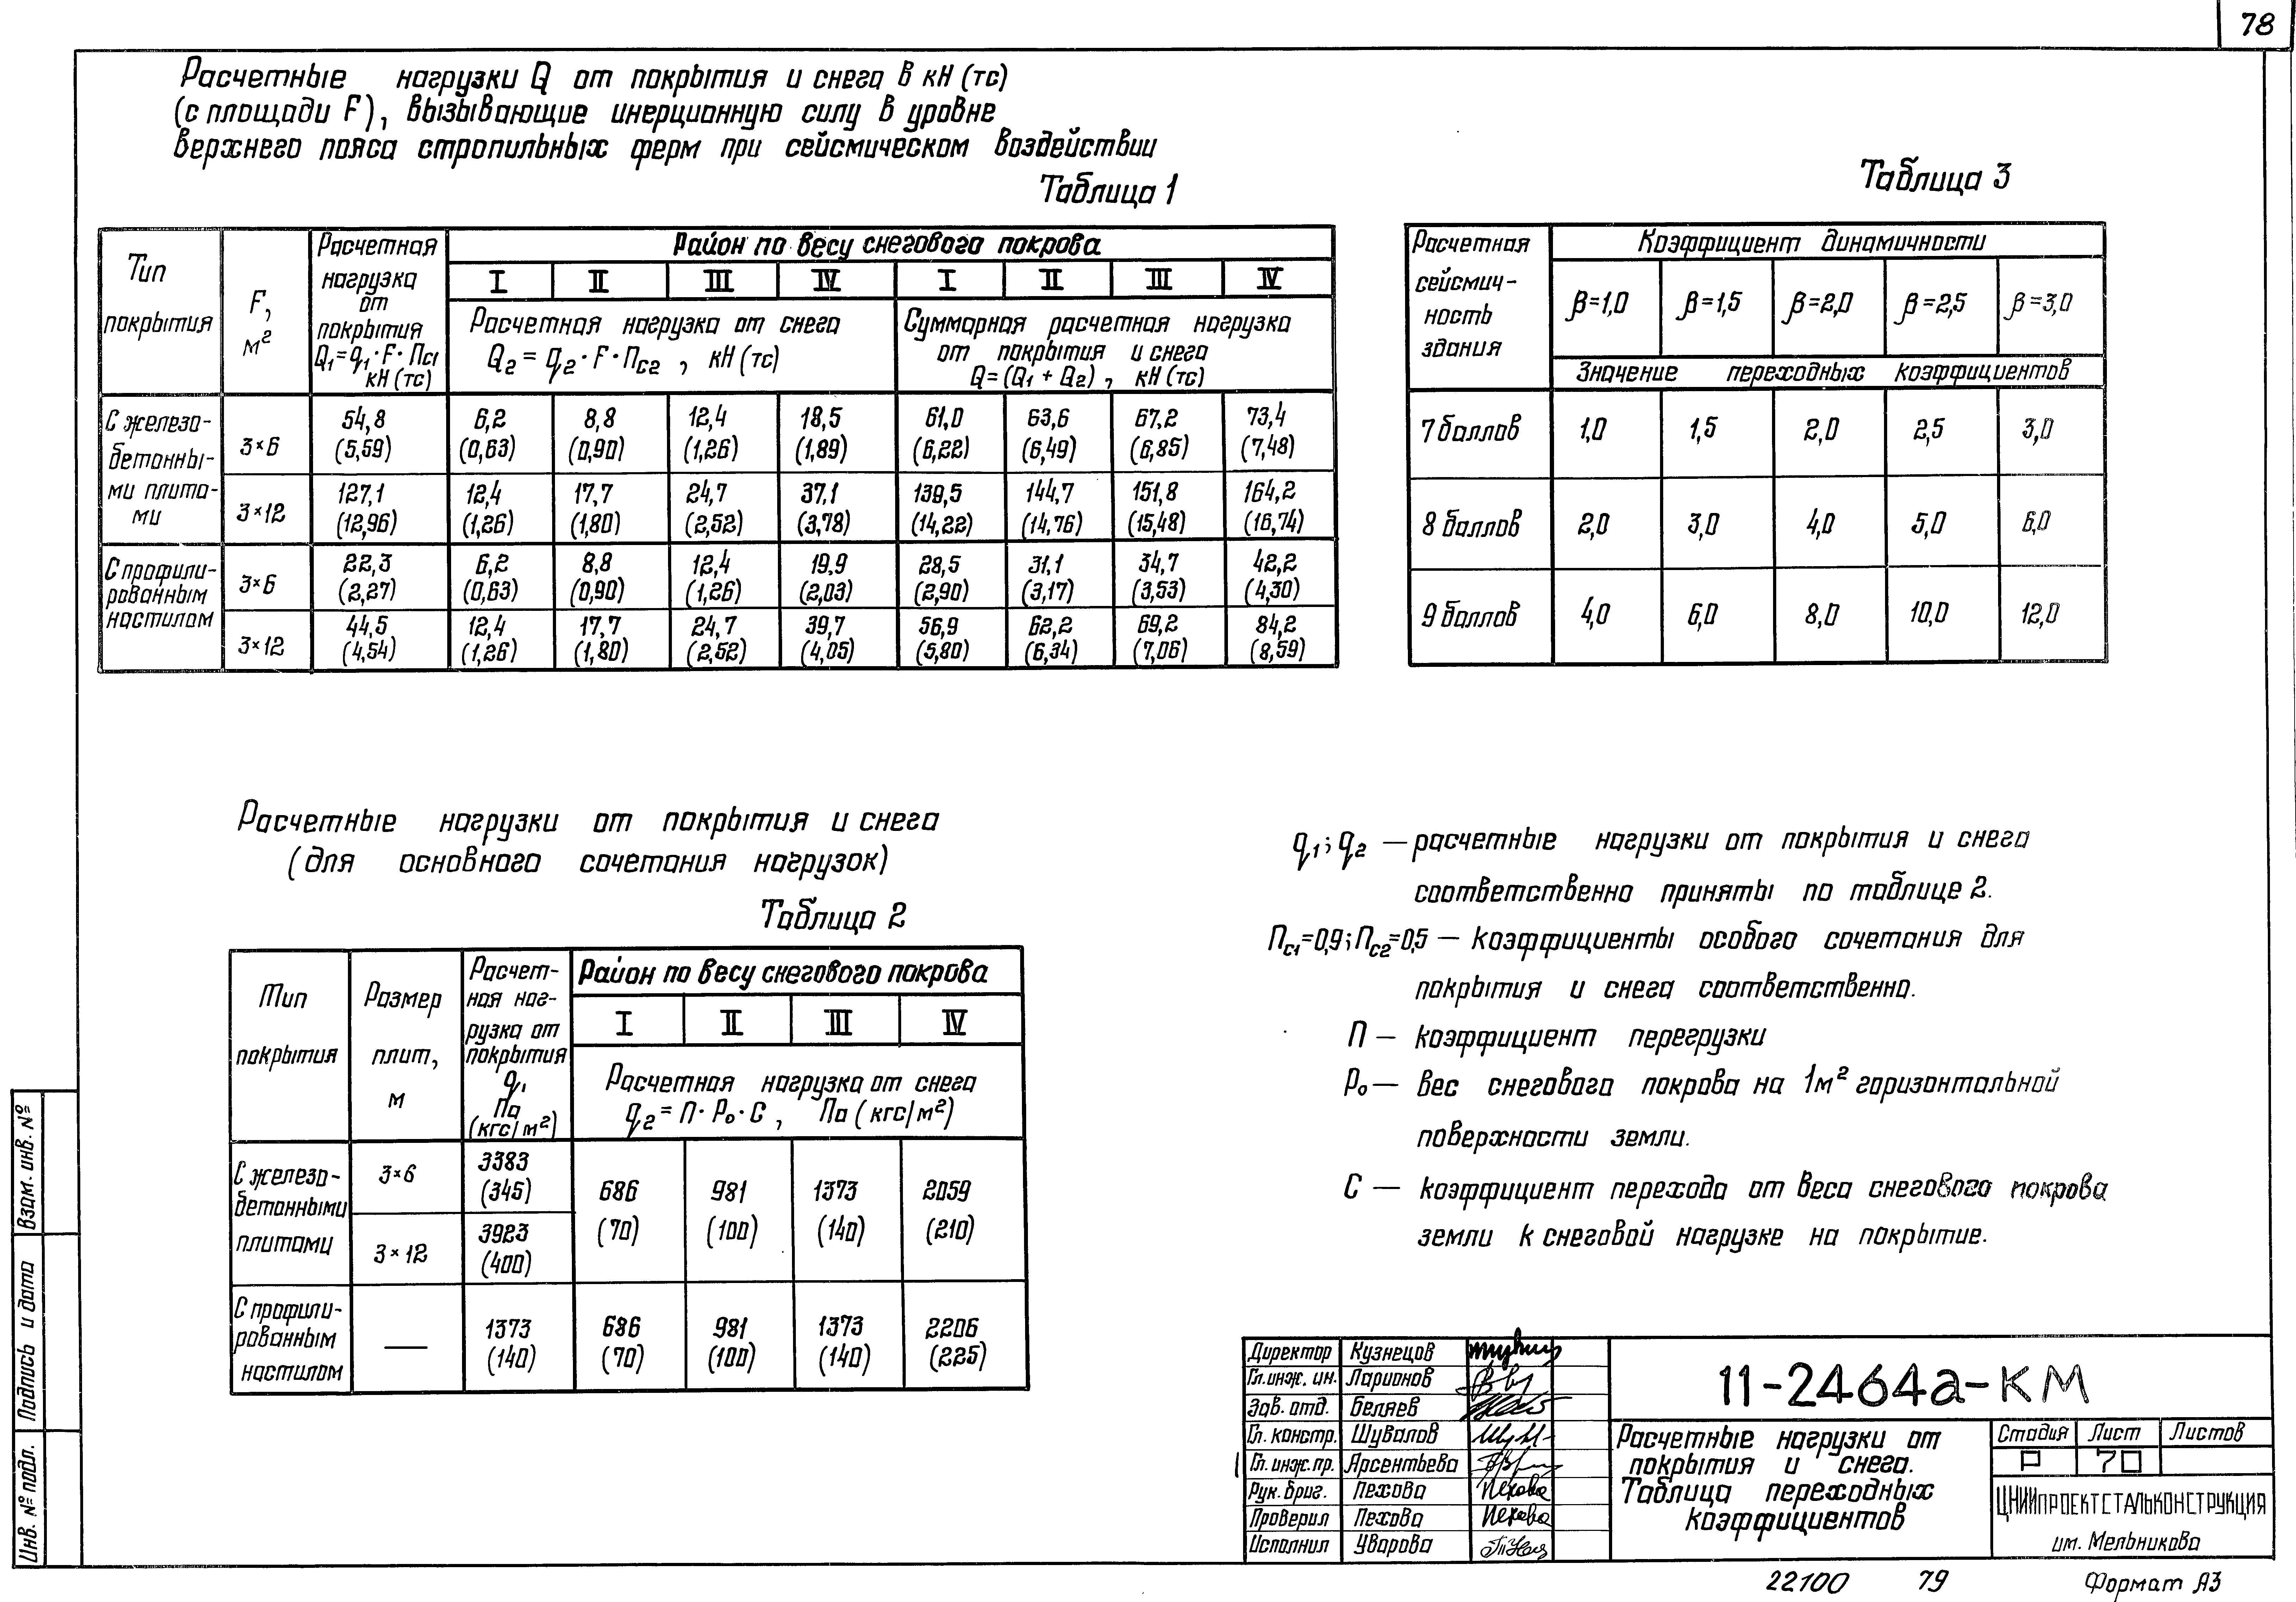 78
Расчетные нагрузки Q от покрытия и снега в кН (тс)
(с площади F), вызывающие инерционную силу в уровне
верхнего пояса стропильных ферм при сейсмическом воздействии
Таблица 1
Тип покрытия
F, м²
Расчетная нагрузка от покрытия Q₁=q₁·F·Пс1 кН (тс)
Район по весу снегового покрова
I II III IV I II III IV
Расчетная нагрузка от снега
Q₂ = q₂ · F · Пс2 , кН (тс)
Суммарная расчетная нагрузка
от покрытия и снега
Q=(Q₁ + Q₂) , кН (тс)
С железобетонными плитами
3×6 54,8 6,2 8,8 12,4 18,5 61,0 63,6 67,2 73,4
(5,59) (0,63) (0,90) (1,26) (1,89) (6,22) (6,49) (6,85) (7,48)
3×12 127,1 12,4 17,7 24,7 37,1 139,5 144,7 151,8 164,2
(12,96) (1,26) (1,80) (2,52) (3,78) (14,22) (14,76) (15,48) (16,74)
С профилированным настилом
3×6 22,3 6,2 8,8 12,4 19,9 28,5 31,1 34,7 42,2
(2,27) (0,63) (0,90) (1,26) (2,03) (2,90) (3,17) (3,53) (4,30)
3×12 44,5 12,4 17,7 24,7 39,7 56,9 62,2 69,2 84,2
(4,54) (1,26) (1,80) (2,52) (4,05) (5,80) (6,34) (7,06) (8,59)
Таблица 3
Расчетная сейсмичность здания
Коэффициент динамичности
β=1,0 β=1,5 β=2,0 β=2,5 β=3,0
Значение переходных коэффициентов
7 баллов 1,0 1,5 2,0 2,5 3,0
8 баллов 2,0 3,0 4,0 5,0 6,0
9 баллов 4,0 6,0 8,0 10,0 12,0
Расчетные нагрузки от покрытия и снега
(для основного сочетания нагрузок)
Таблица 2
Тип покрытия
Размер плит, м
Расчетная нагрузка от покрытия q₁ Па (кгс/м²)
Район по весу снегового покрова
I II III IV
Расчетная нагрузка от снега
q₂ = П · Р₀ · С , Па (кгс/м²)
С железобетонными плитами
3×6 3383 (345)
3×12 3923 (400)
686 981 1373 2059
(70) (100) (140) (210)
С профилированным настилом
— 1373 686 981 1373 2206
(140) (70) (100) (140) (225)
q₁; q₂ — расчетные нагрузки от покрытия и снега
соответственно приняты по таблице 2.
Пс1=0,9; Пс2=0,5 — коэффициенты особого сочетания для
покрытия и снега соответственно.
П — коэффициент перегрузки
Р₀ — вес снегового покрова на 1м² горизонтальной
поверхности земли.
С — коэффициент перехода от веса снегового покрова
земли к снеговой нагрузке на покрытие.
Взам. инв. №
Подпись и дата
Инв. № подл.
Директор Кузнецов
Гл. инж. ин. Ларионов
Зав. отд. Беляев
Гл. констр. Шувалов
Гл. инж. пр. Арсентьева
Рук. бриг. Пехова Пехова
Проверил Пехова Пехова
Исполнил Уварова
11-2464а-КМ
Расчетные нагрузки от
покрытия и снега.
Таблица переходных
коэффициентов
Стадия Лист Листов
Р 70
ЦНИИПРОЕКТСТАЛЬКОНСТРУКЦИЯ
им. Мельникова
22100 79 Формат А3